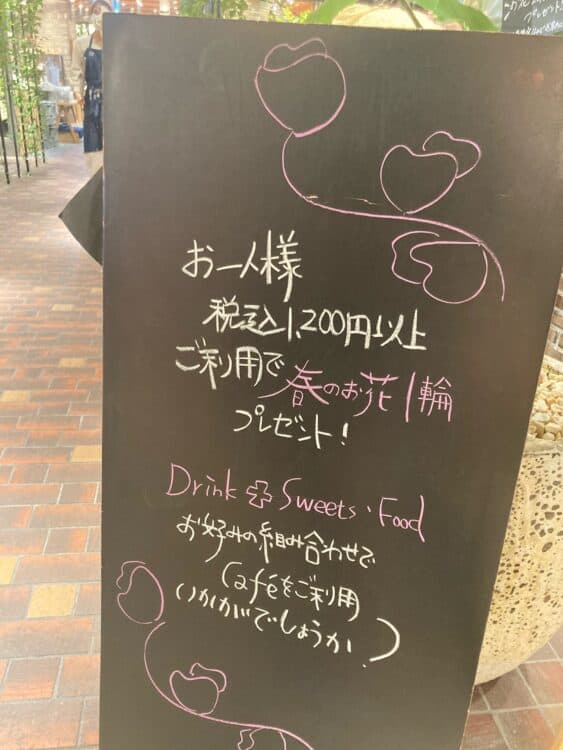 お一人様
税込1,200円以上
ご利用で春のお花1輪
プレゼント!
Drink + Sweets・Food
お好みの組み合わせで
Caféをご利用
いかがでしょうか?
プレゼント!